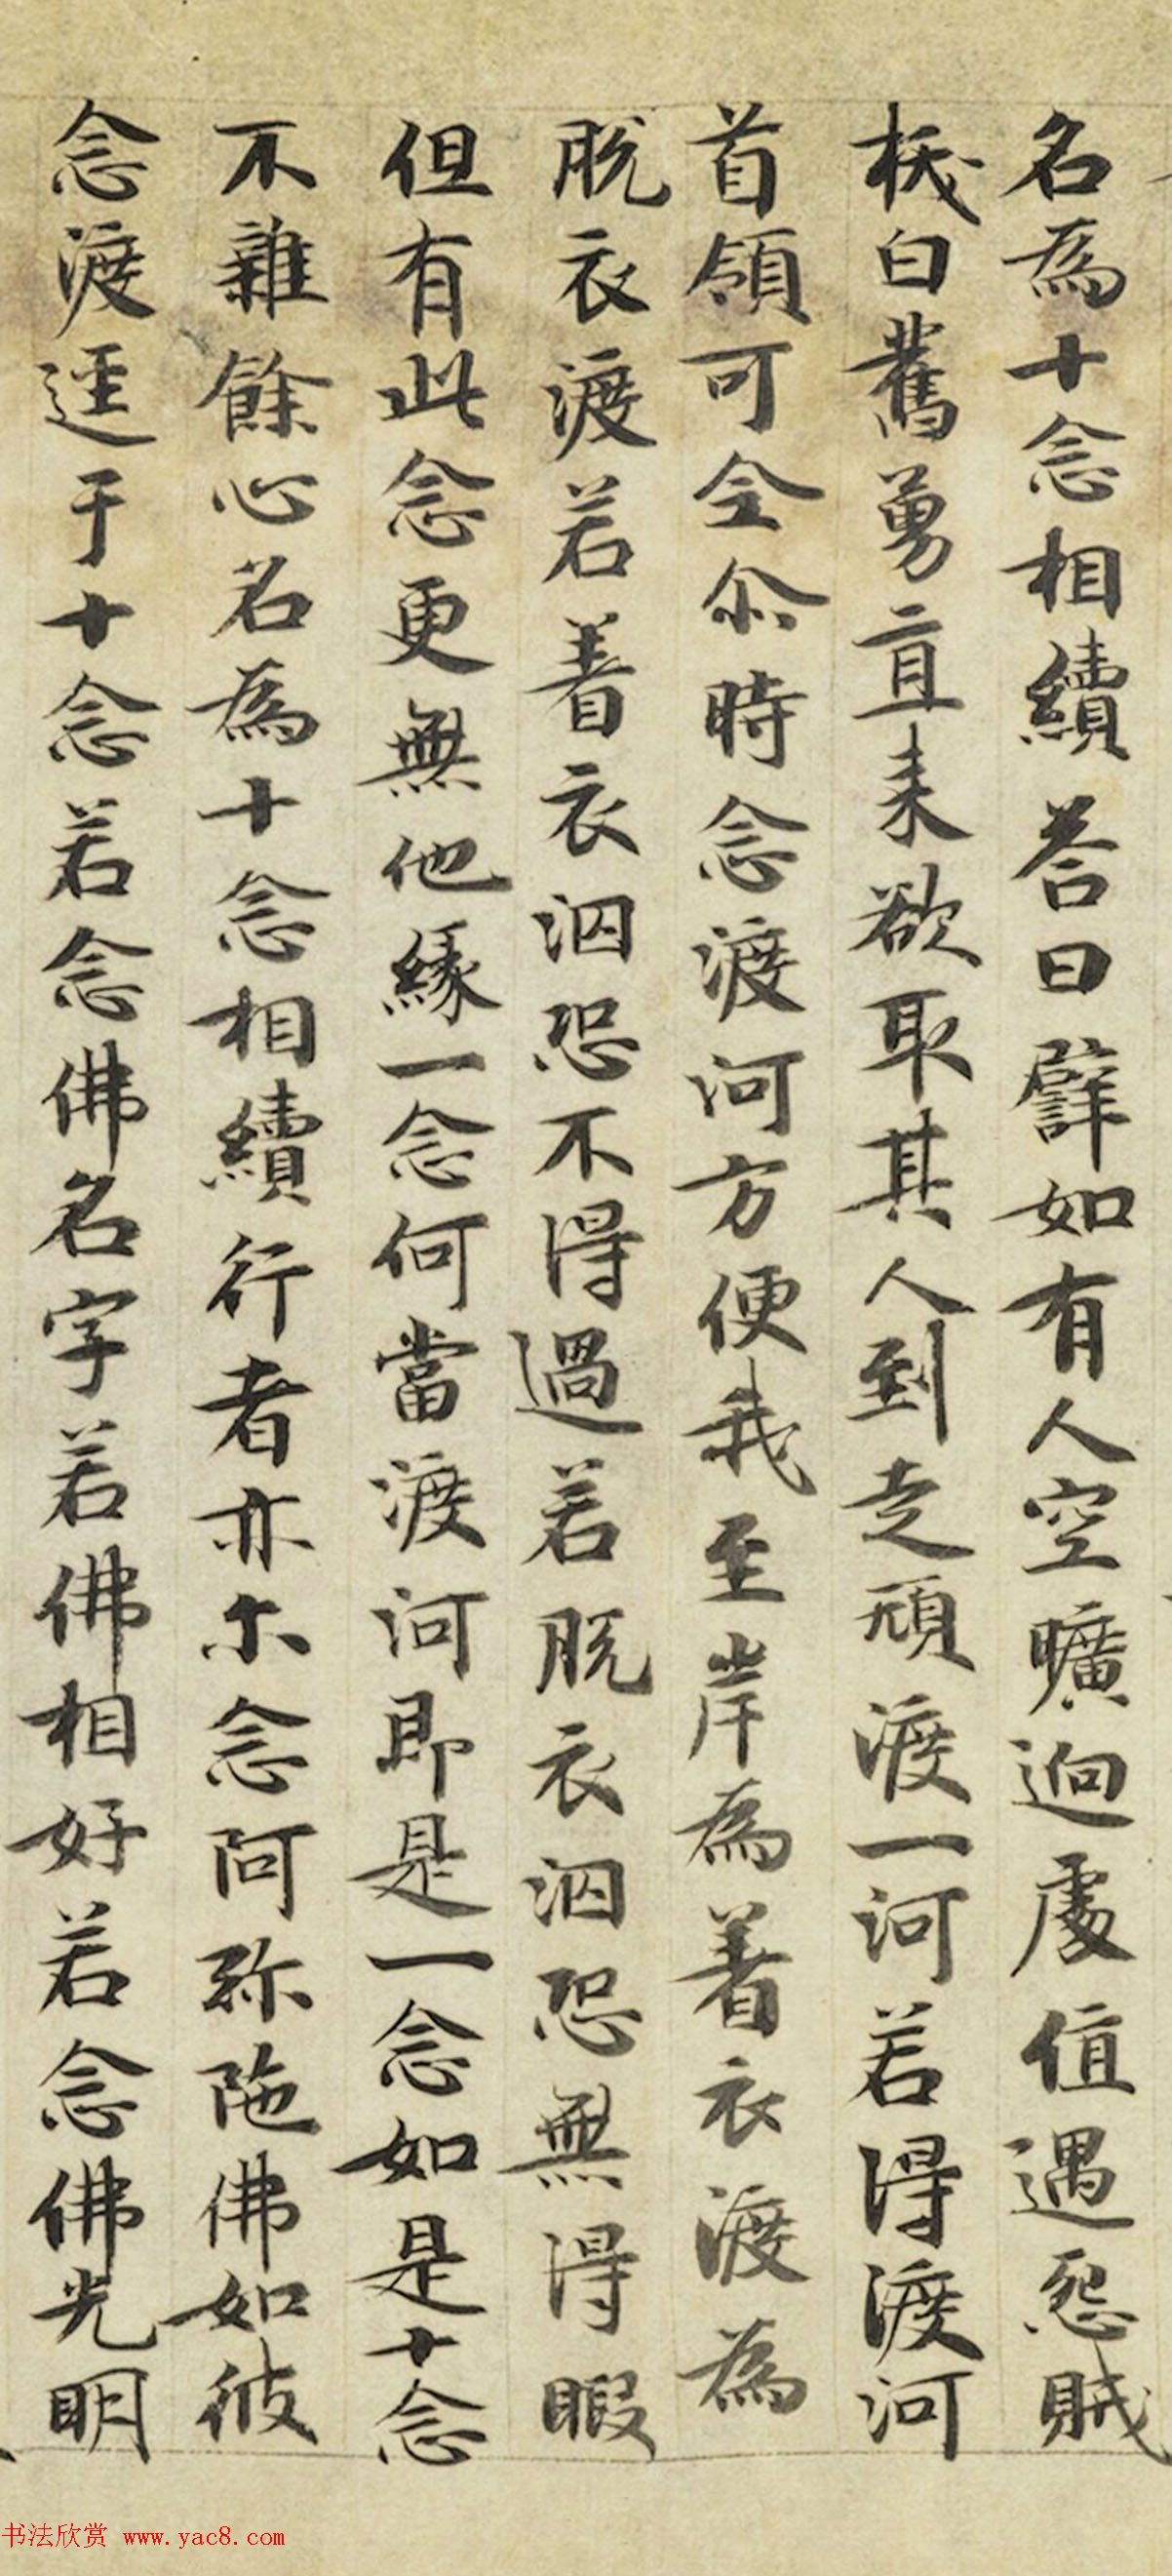 名為十念相續荅曰譬如有人空曠迥處值遇怨賊
栰白舊勇直来欲取其人到走頑渡一河若得渡河
首領可全尒時念渡河方便我至岸為著衣渡為
脱衣渡若着衣泅恐不得過若脱衣泅恐無得暇
但有此念更無他緣一念何當渡河即是一念如是十念
不雜餘心名為十念相續行者亦尒念阿弥陁佛如彼
念渡逕于十念若念佛名字若佛相好若念佛光明
书法欣赏 www.yac8.com